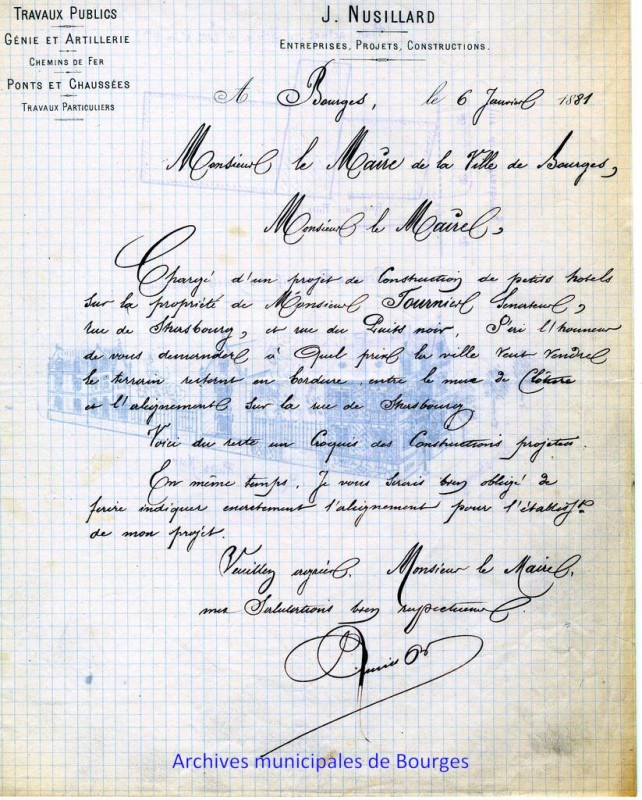 TRAVAUX PUBLICS
GÉNIE ET ARTILLERIE
CHEMINS DE FER
PONTS ET CHAUSSÉES
TRAVAUX PARTICULIERS
J. NUSILLARD
ENTREPRISES, PROJETS, CONSTRUCTIONS.
A Bourges, le 6 Janvier 1881
Monsieur le Maire de la Ville de Bourges,
Monsieur le Maire,
Chargé d'un projet de Construction de petits hotels
sur la propriété de Monsieur Fournier Senateur,
rue de Strasbourg, et rue du Puits noir, J'ai l'honneur
de vous demander à Quel prix la ville veut vendre
le terrain restant en bordure entre le mur de Clôture
et l'aleignement sur la rue de Strasbourg
Voici du reste un Croquis des Constructions projetées.
En même temps, Je vous serais bien obligé de
faire indiquer exactement l'aleignement pour l'établisst
de mon projet.
Veuillez agréer, Monsieur le Maire,
mes Salutations bien respectueuses.
Archives municipales de Bourges